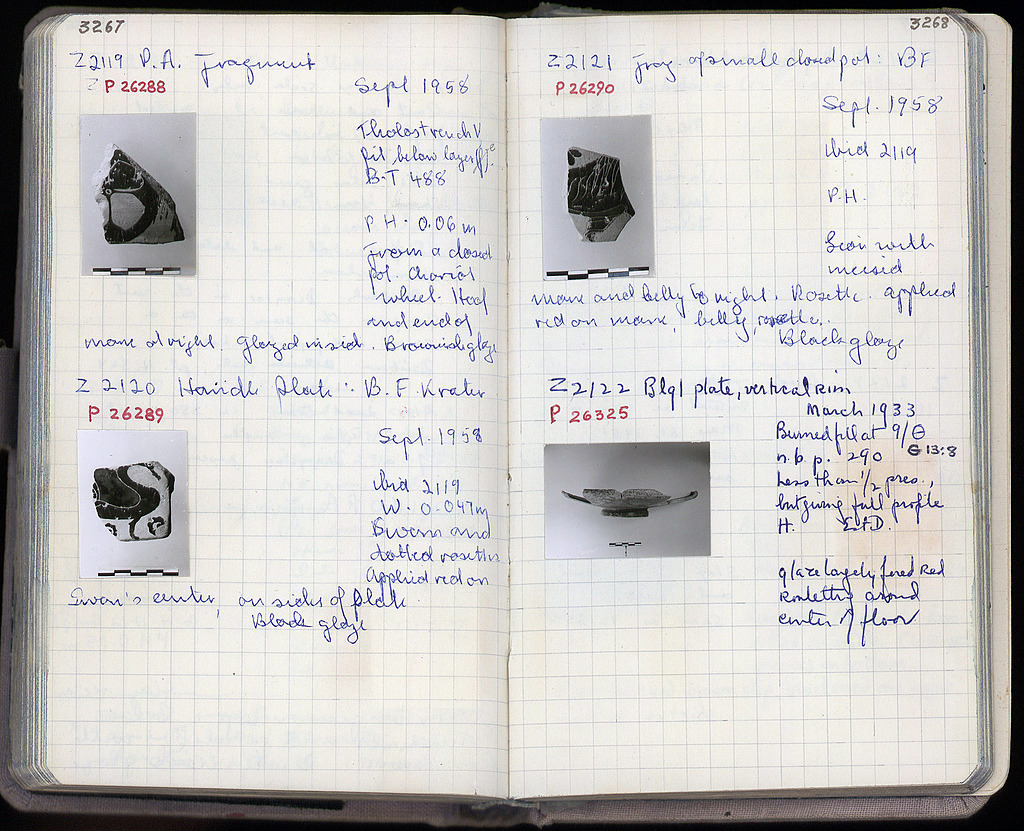 3267
Z 2119 P.A. Fragment
P 26288
Sept 1958
Tholos trench V
pit below layer
B.T 488
P H. 0.06 m
From a closed
pot. Chariot
wheel. Hoof
and end of
mane at right. Glazed inside. Brownish glaze
Z 2120 Handle Plate: B.F. Krater
P 26289
Sept. 1958
Ibid 2119
W. 0.047m
Swan and
dotted rosettes
Applied red on
Swan's center, on sides of plate.
Black glaze
3268
Z 2121 frag. of small closed pot: BF
P 26290
Sept. 1958
Ibid 2119
P.H.
Lion with
incised
mane and belly to right. Rosette. applied
red on mane, belly, rosette.
Black glaze
Z 2122 Blgl plate, vertical rim
P 26325
March 1933
Burned fill at 9/Θ
n.b.p. 290 G 13:8
Less than 1/2 pres.,
but giving full profile
H. Est D.
glaze largely fired red
Rouletting around
center of floor